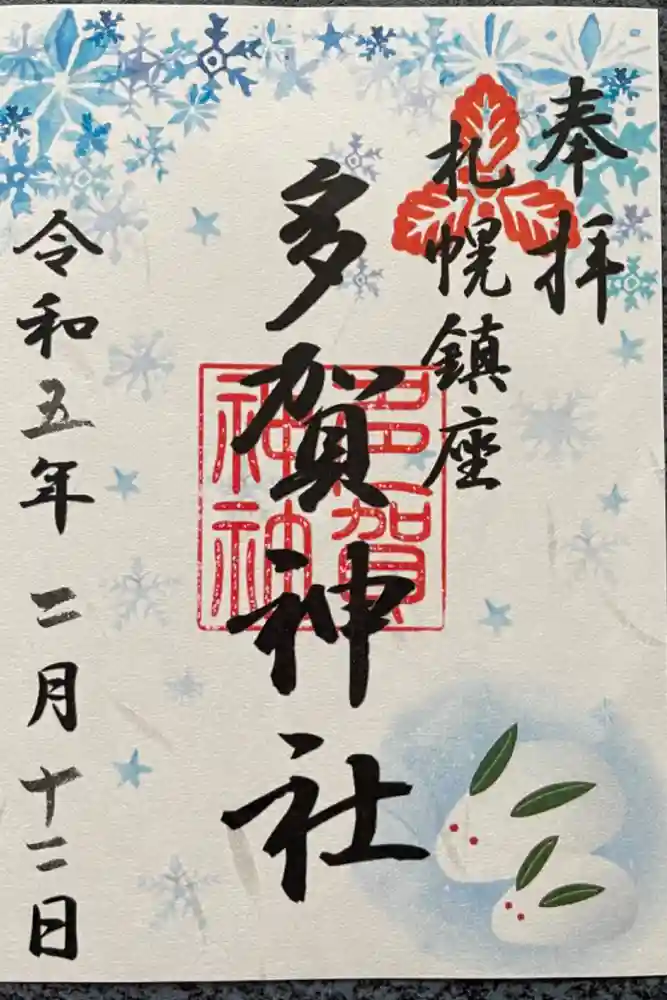 奉拝
札幌鎮座
多賀神社
多賀
神社
令和五年 二月 十二日